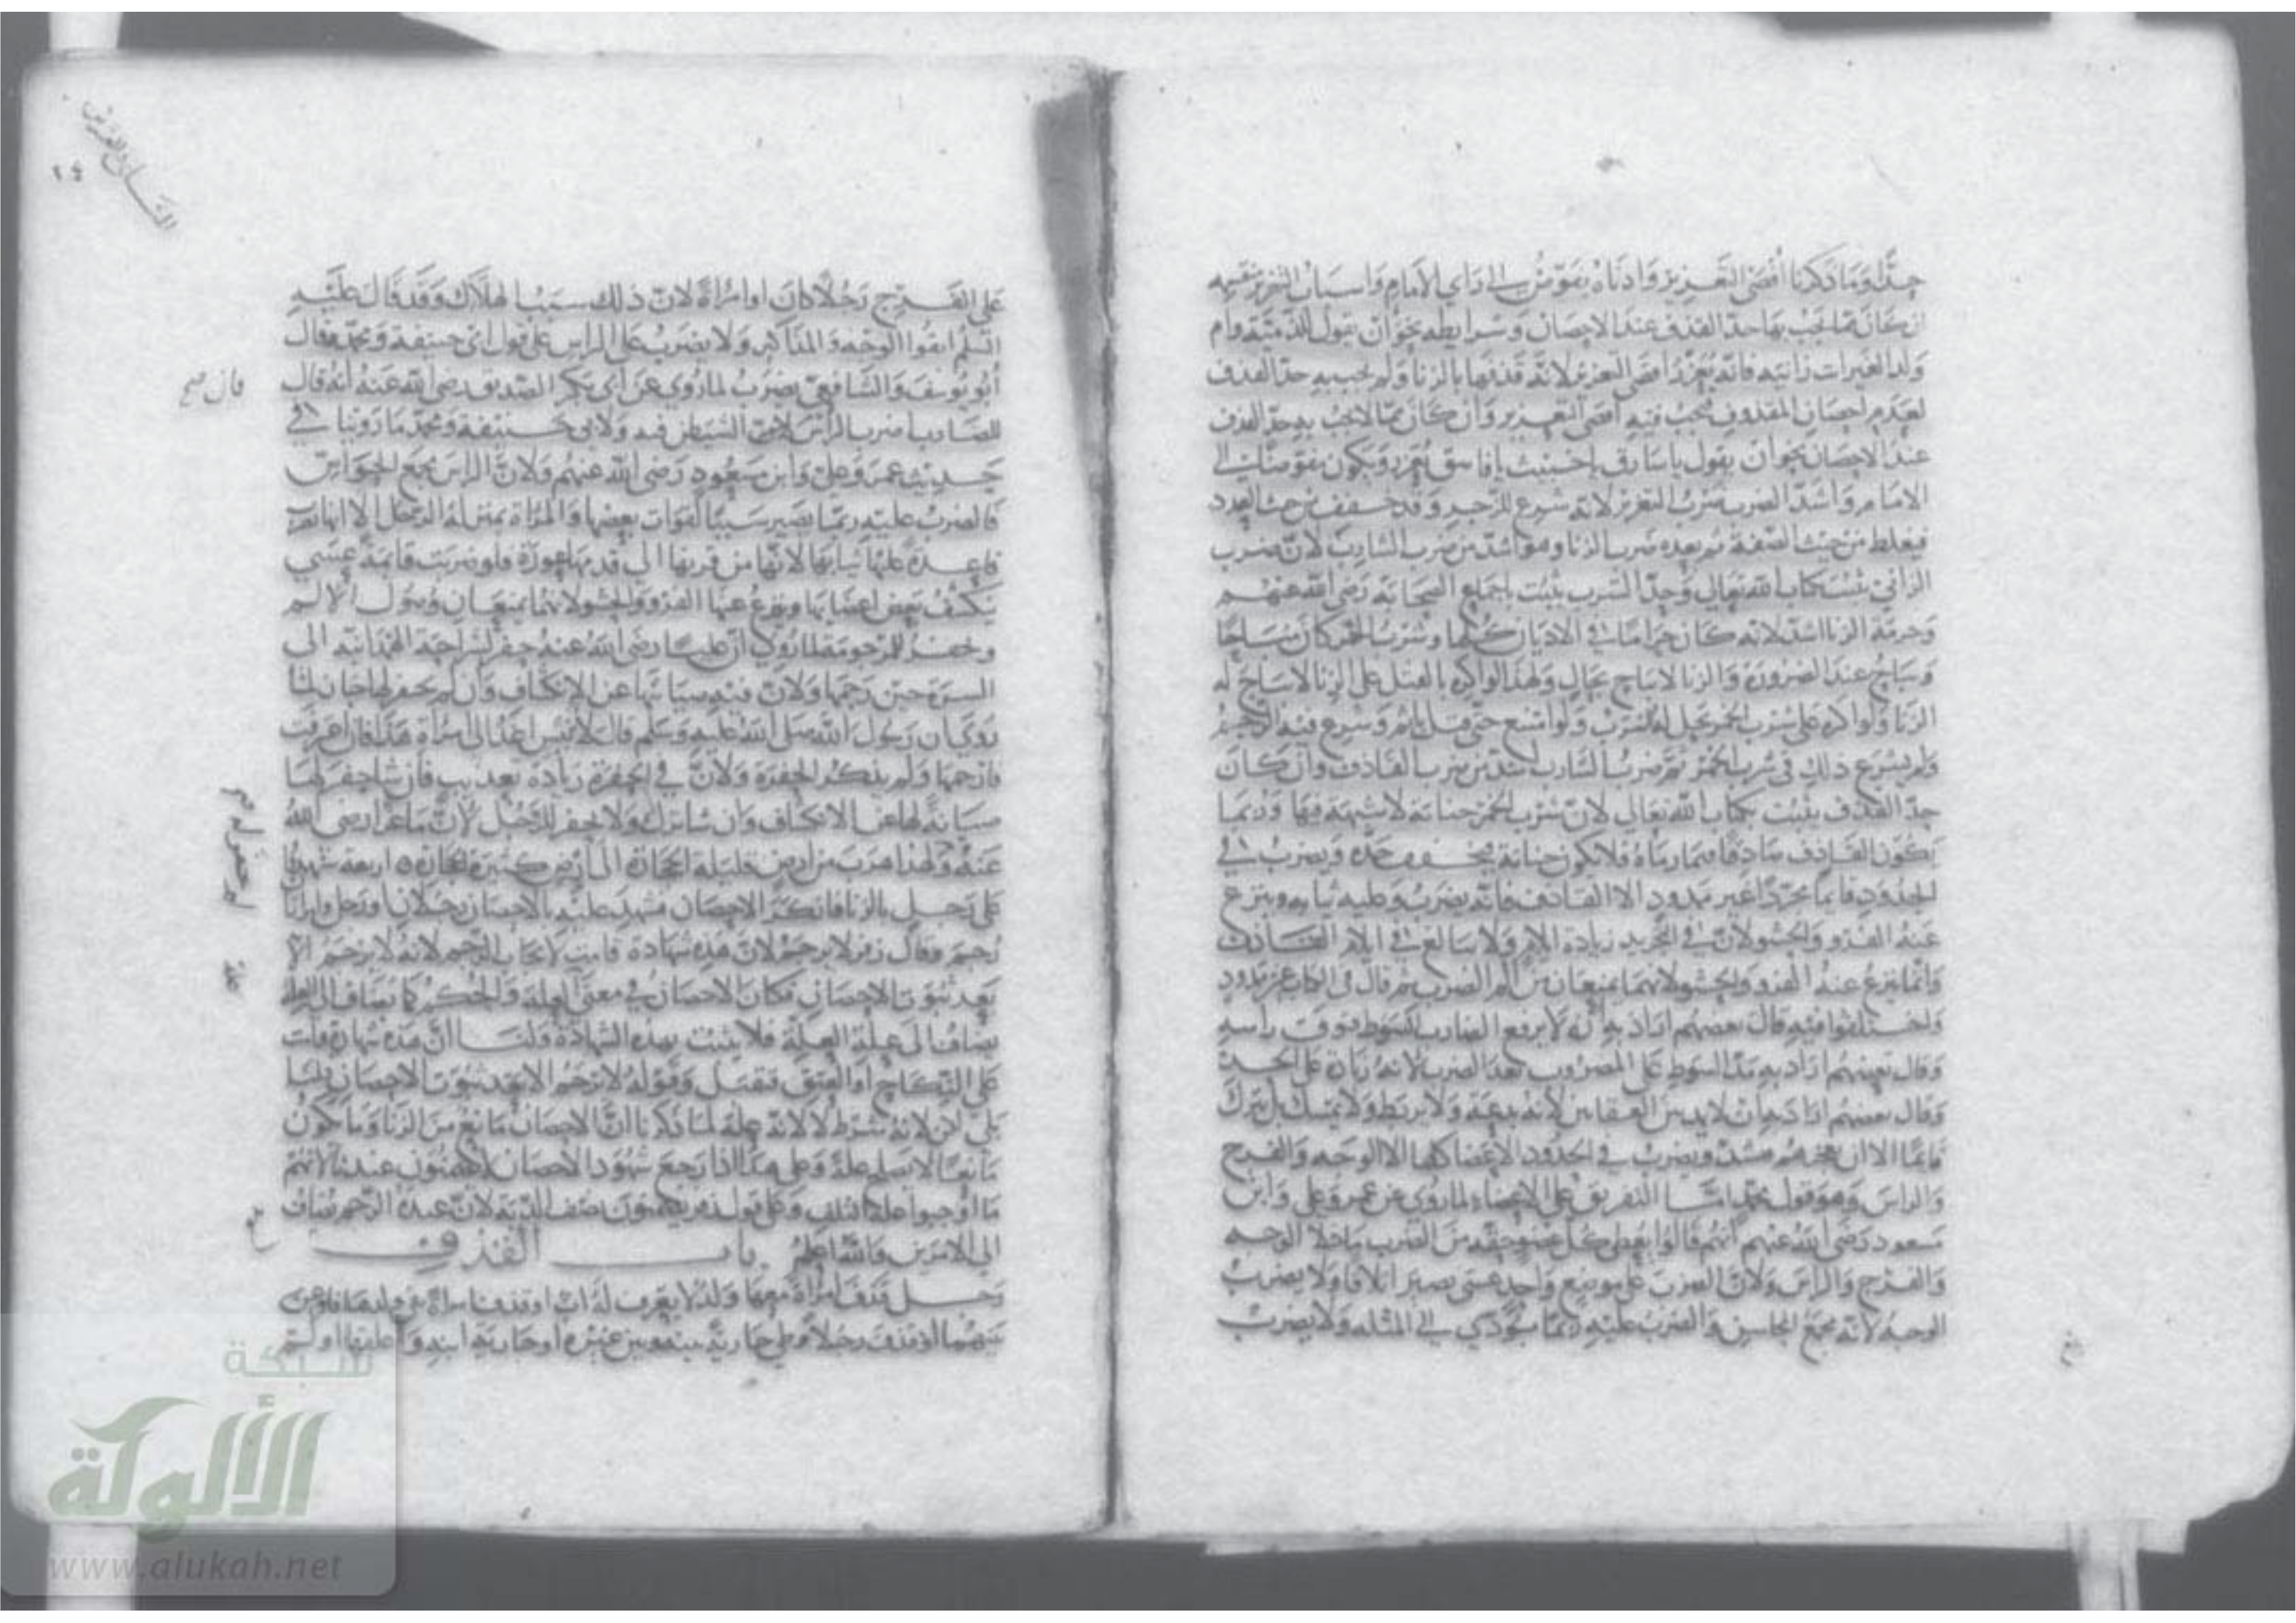 جدًا وما ذكرنا أقصى التعزير وأدناه يفوض إلى راي الإمام وأسباب التعزير
إن كان مما يجب بها حد القذف عند الإحصان وشرايطه نحو أن يقول للذمية وأم
ولد الغير زانية فإنه يعزر أقصى التعزير لأنه قذفها بالزنا ولم يجب به حد القذف
لعدم إحصان المقذوف فيجب فيه أقصى التعزير وإن كان مما لا يجب به حد القذف
عند الإحصان نحو أن يقول يا سارق يا خبيث يا فاسق يعزر ويكون مفوضا إلى
الإمام وأشد الضرب ضرب التعزير لأنه شرع للزجر وقد خفف من حيث العدد
فيغلظ من حيث الصفة ثم بعده ضرب الزنا وهو أشد من ضرب الشارب لأن ضرب
الزاني ثبت بكتاب الله تعالى وحد الشرب يثبت بإجماع الصحابة رضي الله عنهم
وحرمة الزنا أشد لأنه كان حراما في الأديان كلها وشرب الخمر كان مباحا
ويباح عند الضرورة والزنا لا يباح بحال ولهذا لو أكره بالقتل على الزنا لا يباح له
الزنا ولو أكره على شرب الخمر يحل له الشرب ولو امتنع حتى قتل يأثم وشرع فيه الرجم
ولم يشرع ذلك في شرب الخمر ثم ضرب الشارب أشد من ضرب القاذف وإن كان
حد القذف يثبت بكتاب الله تعالى لأن شرب الخمر جناية لا شبهة فيها وربما
يكون القاذف صادقا فيما رماه فلا يكون جناية فيخفف حده ويضرب في
الحدود قائما مجردا غير ممدود إلا القاذف فإنه يضرب وعليه ثيابه وينزع
عنه الفرو والحشو لأن في التجريد زيادة الإيلام ولا يبالغ في إيلام القاذف
وإنما ينزع عنه الفرو والحشو لأنهما يمنعان من ألم الضرب ثم قال في الكتاب غير ممدود
واختلفوا فيه قال بعضهم أراد به أن لا يرفع الضارب السوط فوق راسه
وقال بعضهم أراد به مد السوط على المضروب بعد الضرب لأنه زيادة على الحد
وقال بعضهم أراد به أن لا يمد بين العقابين لأنه بدعة ولا يربط ولا يمسك بل يترك
قائما إلا أن يعجزهم فيشد ويضرب في الحدود الأعضا كلها إلا الوجه والفرج
والراس وهو قول محمد أما التفريق على الأعضاء لما روي عن عمر وعلي وابن
مسعود رضي الله عنهم أنهم قالوا يعطى كل عضو حقه من الضرب ما خلا الوجه
والفرج والراس ولأن الضرب على موضع واحد عسى يصير اتلافا ولا يضرب
الوجه لأنه مجمع المحاسن والضرب عليه ربما يؤدي إلى المثلة ولا يضرب
على الفرج رجلا كان أو امرأة لأن ذلك سببا لهلاك وقد قال عليه
السلم اتقوا الوجه والمذاكير ولا يضرب على الراس على قول أبي حنيفة ومحمد وقال
أبو يوسف والشافعي يضرب لما روي عن أبي بكر الصديق رضي الله عنه أنه قال
للضارب اضرب الراس لأن الشيطان فيه ولأبي حنيفة ومحمد ما روينا في
حديث عمر وعلي وابن مسعود رضي الله عنهم ولأن الراس مجمع الحواس
فالضرب عليه ربما يصير سببا لفوات بعضها والمرأة بمنزلة الرجل إلا أنها تضرب
قاعدة عليها ثيابها لأنها من قرنها إلى قدمها عورة فلو ضربت قائمة عسى
يكشف بعض أعضايها وينزع عنها الفرو والحشو لأنهما يمنعان وصول الألم
ويحفر للمرجومة لما روي أن عليا رضي الله عنه حفر لشراحة الهمدانية إلى
السرة حين رجمها ولأن فيه صيانتها عن الانكشاف وإن لم يحفر لها جاز لما
روي أن رسول الله صلى الله عليه وسلم قال لأنيس اغد إلى امرأة هذا فإن اعترفت
فارجمها ولم يذكر الحفرة ولأن في الحفرة زيادة تعذيب فإن شا حفر لها
صيانة لها عن الانكشاف وإن شا ترك ولا يحفر للرجل لأن ماعزا رضي الله
عنه ولهذا هرب من أرض قليلة الحجارة إلى أرض كثيرة الحجارة أربعة شهدوا
على رجل بالزنا فأنكر الإحصان فشهد عليه بالإحصان رجلان أو رجل وامرأتان
رجم وقال زفر لا يرجم لأن هذه شهادة قامت لإيجاب الرجم لأنه لا يرجم إلا
بعد ثبوت الإحصان فكان الإحصان في معنى العلة والحكم كما يضاف إلى العلة
يضاف إلى علة العلة فلا يثبت بهذه الشهادة ولنا أن هذه شهادة قامت
على النكاح أو العتق فتقبل وقوله لا يرجم إلا بعد ثبوت الإحصان قلنا
بلى لكن لأنه شرط لا لأنه علة لما ذكرنا أن الإحصان مانع من الزنا وما يكون
مانعا لا يصلح علة وعلى هذا إذا رجع شهود الإحصان لا يضمنون عندنا لأنهم
ما أوجبوا علة التلف وعلى قول زفر يضمنون نصف الدية لأن عنده الرجم يضاف
إلى الأمرين والله أعلم باب القذف
رجل قذف امرأة معها ولد لا يعرف له أب أو قذف امرأة
أو قذف رجلا وطي جارية بينه وبين غيره أو جارية ابنه
قال صح
شبكة
الألوكة
www.alukah.net